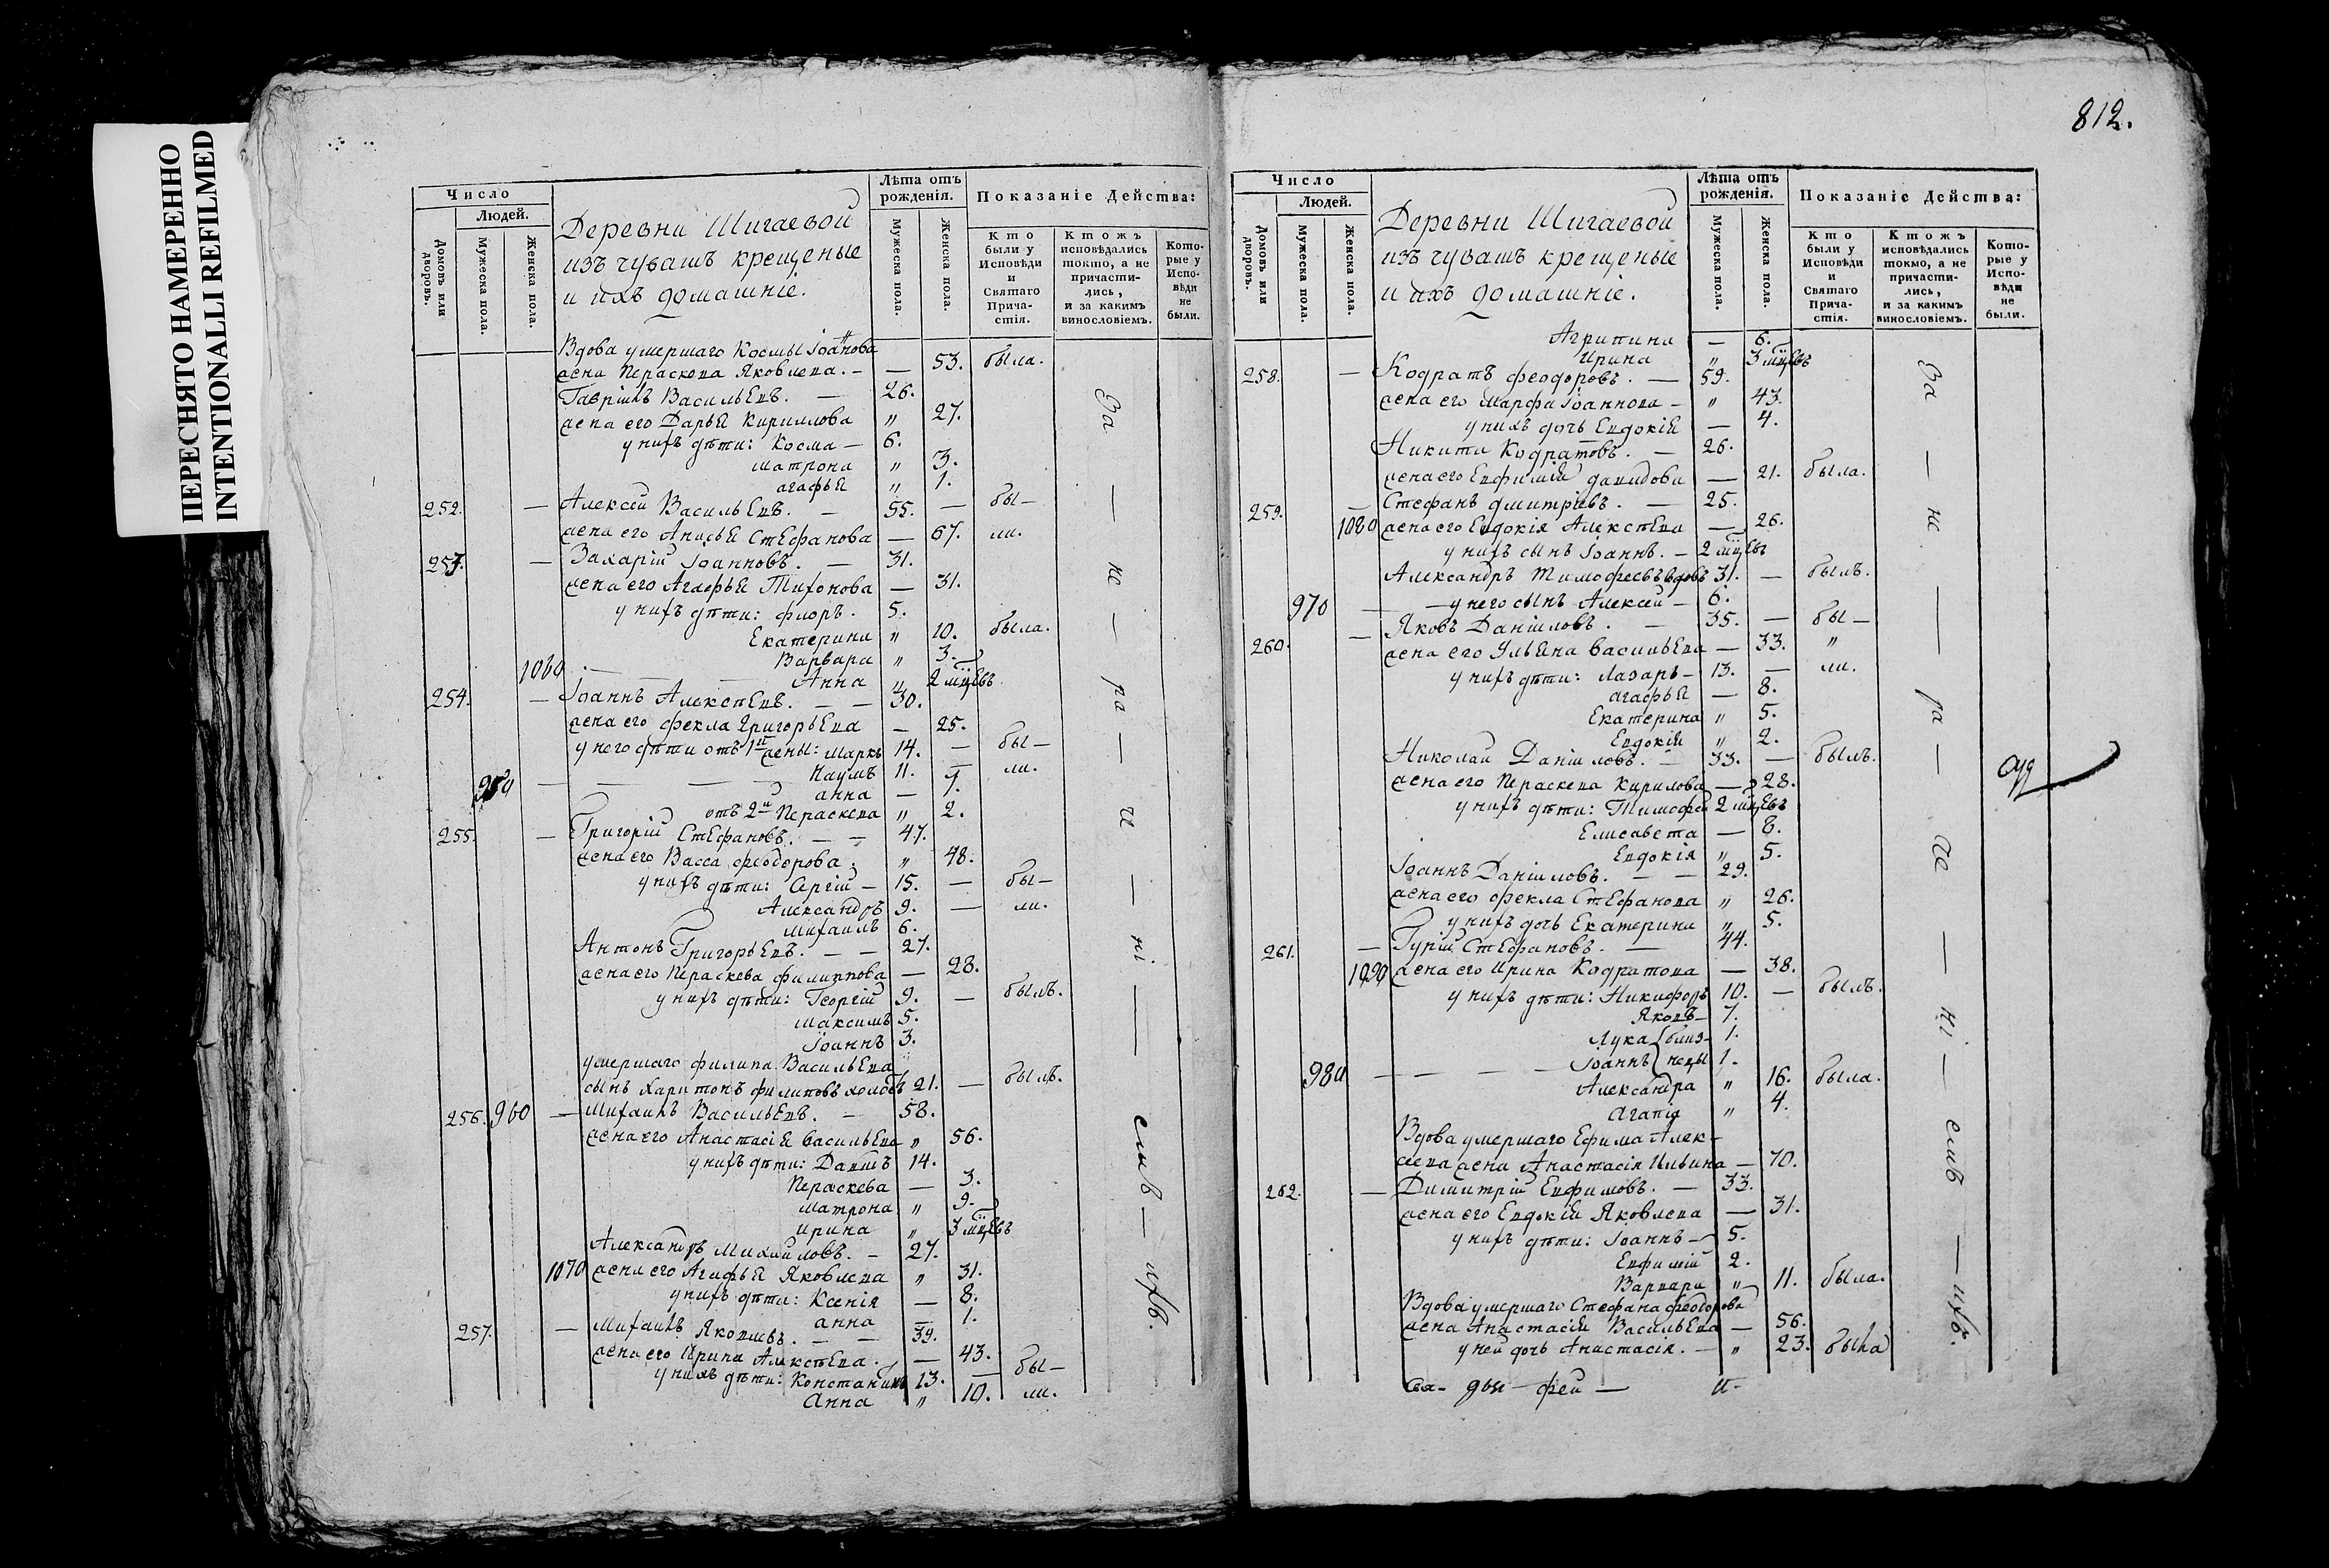 ПЕРЕСНЯТО НАМЕРЕННО
INTENTIONALLI REFILMED
Число
Людей.
Домовъ или дворовъ.
Мужеска пола.
Женска пола.
Деревни Шигаевой
изъ чувашъ крещеные
и ихъ домашніе.
Лѣта отъ рожденія.
Мужеска пола.
Женска пола.
Показаніе Действа:
Кто были у Исповѣди и Святаго Причастія.
Ктожъ исповѣдались токмо, а не причастились, и за какимъ винословіемъ.
Которые у Исповѣди не были.
Вдова умершаго Космы Іоаннова
жена Параскева Яковлева. — — 53. была.
Гаврiилъ Васильевъ. — 26.
жена его Дарья Кириллова " 27.
у нихъ дѣти: Косма — 6.
Матрона " 3.
Агафья " 1.
252. — Алексей Васильевъ. — 55. — бы—
жена его Анисья Стефанова — 67. ли.
253. — Захарій Іоанновъ. — 31.
жена его Агафья Тихонова — 31.
у нихъ дѣти: Флоръ. 5.
Екатерина " 10. была.
Варвара " 3.
1060 — Анна " 2 мцевъ
254. — Іоаннъ Алексѣевъ. — — 30.
жена его Фекла Григорьева — 25.
у него дѣти отъ 1й жены: Маркъ 14. — бы—
950 — Наумъ 11. — ли.
Анна — 7.
отъ 2й Параскева " 2.
255. — Григорій Стефановъ. — — 47.
жена его Васса Феодорова. " 48.
у нихъ дѣти: Сергій — 15. — бы—
Александръ 9. — ли.
Михаилъ 6.
Антонъ Григорьевъ. — — 27.
жена его Параскева Филиппова — 28.
у нихъ дѣти: Георгій 9. — былъ.
Максимъ 5.
Іоаннъ 3.
умершаго Филипа Васильева
сынъ Харитонъ Филиповъ холостъ 21. — былъ.
256. 960 — Михаилъ Васильевъ. — 58.
жена его Анастасія Васильева " 56.
у нихъ дѣти: Данiилъ 14.
Параскева — 3.
Матрона " 9.
Ирина " 3 мцевъ
Александръ Михайловъ. — 27.
1070 жена его Агафья Яковлева " 31.
у нихъ дѣти: Ксенія — 8.
Анна — 1.
257. — Михаилъ Яковлевъ. — — 39.
жена его Ирина Алексѣева. — 43.
у нихъ дѣти: Константинъ 13. — бы—
Анна " 10. ли.
За — не — ра — че — ні — емъ — ихъ.
812.
Число
Людей.
Домовъ или дворовъ.
Мужеска пола.
Женска пола.
Деревни Шигаевой
изъ чувашъ крещеные
и ихъ домашніе.
Лѣта отъ рожденія.
Мужеска пола.
Женска пола.
Показаніе Действа:
Кто были у Исповѣди и Святаго Причастія.
Ктожъ исповѣдались токмо, а не причастились, и за какимъ винословіемъ.
Которые у Исповѣди не были.
Агрипина — 6.
Ирина " 3 мцевъ
258. — Кодратъ Феодоровъ. — 59.
жена его Марфа Іоаннова — " 43.
у нихъ дочь Евдокія — 4.
Никита Кодратовъ. — 26.
жена его Евфимія Давидова — 21. была.
259. — Стефанъ Дмитріевъ. — 25.
1080 жена его Евдокія Алексѣева — 26.
у нихъ сынъ Іоаннъ. — 2 мцевъ
Александръ Тимофеевъ вдовъ 31. — былъ.
970 — — у него сынъ Алексей — 6.
260. — Яковъ Даніиловъ. — 35. — бы—
жена его Ульяна Васильева — 33. "
у нихъ дѣти: Лазарь — 13. — ли.
Агафья — 8.
Екатерина " 5.
Евдокія " 2.
Николай Даніиловъ. — 33. — былъ.
жена его Параскева Кирилова — 28.
у нихъ дѣти: Тимофей 2 мцевъ
Елисавета — 8.
Евдокія " 5.
Іоаннъ Даніиловъ. — — 29.
жена его Фекла Стефанова " 26.
у нихъ дочь Екатерина " 5.
261. — Гурій Стефановъ. — 44.
1090 жена его Ирина Кодратова — 38.
у нихъ дѣти: Никифоръ 10. — былъ.
Яковъ — 7.
Лука близ- 1.
980 — — — — Іоаннъ нецы 1.
Александра " 16. была.
Агапія " 4.
Вдова умершаго Ефима Алек-
сеева жена Анастасія Ильина — 70.
262. — Димитрій Евфимовъ. — 33.
жена его Евдокія Яковлева — 31.
у нихъ дѣти: Іоаннъ — 5.
Евфимій 2.
Варвара " 11. была.
Вдова умершаго Стефана Феодорова
жена Анастасія Васильева — 56.
у ней дочь Анастасія. — " 23. была
За — не — ра — че — ні — емъ — ихъ.